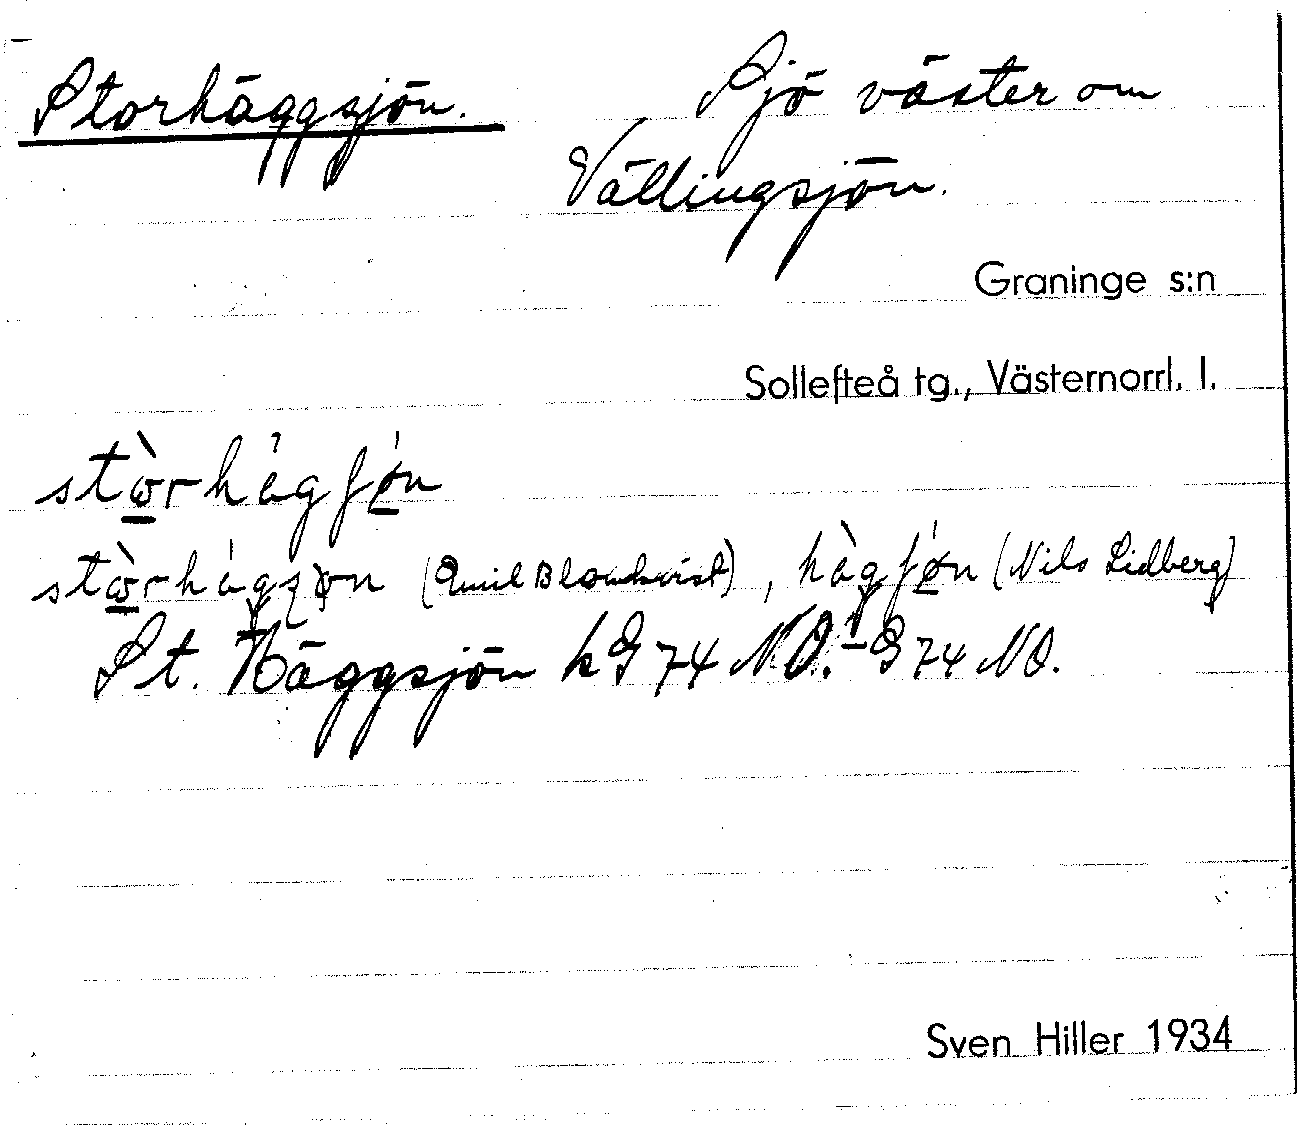 Storhäggsjön.
Sjö väster om
Vällingsjön.
Graninge s:n
Sollefteå tg., Västernorrl. l.
stòrhágʃǿn
stòrhágsjøn (Emil Blomkvist), hàgʃǿn (Nils Lidberg)
St. Häggsjön k G 74 NO. - G 74 NO.
Sven Hiller 1934